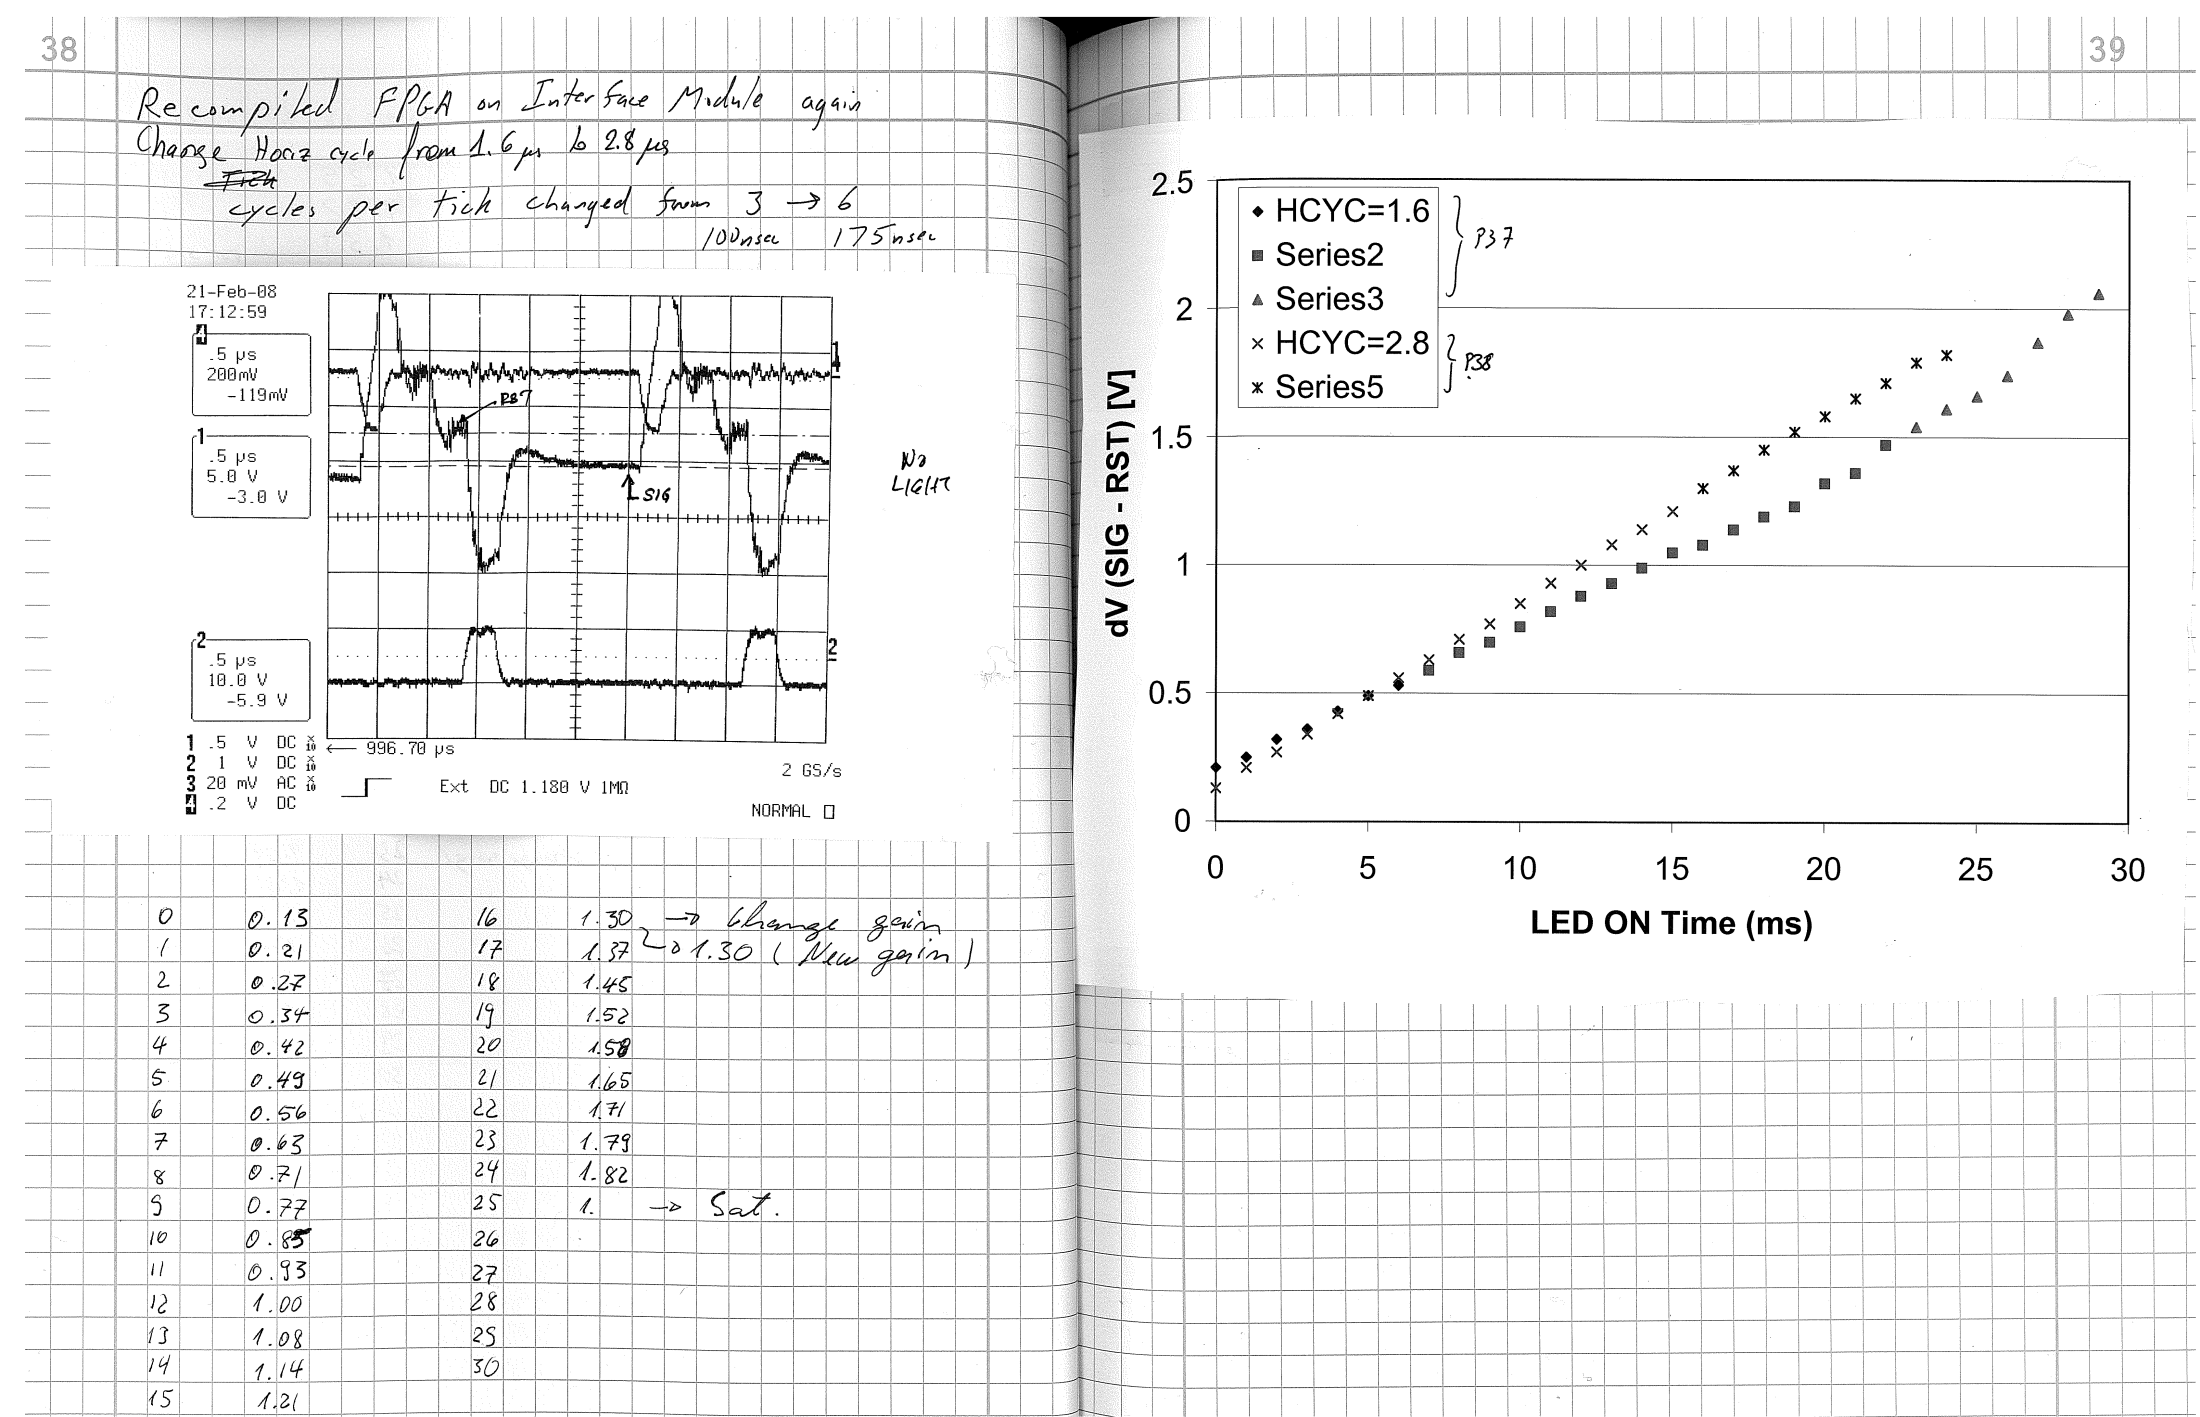 38
Recompiled FPGA on Interface Module again
Change Horiz cycle from 1.6 µs to 2.8 µs
Tick
cycles per tick changed from 3 → 6
100nsec 175nsec
21-Feb-08
17:12:59
4
.5 µs
200mV
-119mV
1
.5 µs
5.0 V
-3.0 V
2
.5 µs
10.0 V
-5.9 V
1
2
RST
SIG
No
LIGHT
← 996.70 µs
2 GS/s
1 .5 V DC X10
2 1 V DC X10
3 20 mV AC X10
4 .2 V DC
Ext DC 1.180 V 1MΩ
NORMAL
0 0.13 16 1.30 → Change gain
1 0.21 17 1.37 → 1.30 (New gain)
2 0.27 18 1.45
3 0.34 19 1.52
4 0.42 20 1.58
5 0.49 21 1.65
6 0.56 22 1.71
7 0.63 23 1.79
8 0.71 24 1.82
9 0.77 25 1. → Sat.
10 0.85 26
11 0.93 27
12 1.00 28
13 1.08 29
14 1.14 30
15 1.21
39
HCYC=1.6
Series2
Series3
P37
HCYC=2.8
Series5
P38
2.5
2
1.5
1
0.5
0
dV (SIG - RST) [V]
0 5 10 15 20 25 30
LED ON Time (ms)